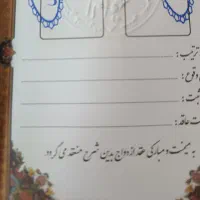 ترتیب :
وقوع :
ثبت :
ت عاقد :
به میمنت و مبارکی عقد ازدواج بدین شرح منعقد می گردد.